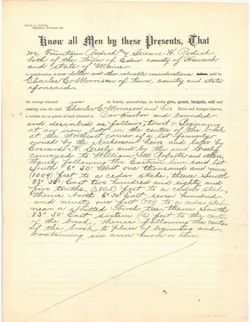 Know all Men by these Presents, That
We, Fountain Rodick & Serenus H. Rodick
both of the Town of Eden county of Hancock
and State of Maine
in consideration of one dollar and other valuable considerations paid by
Charles C. Morrison of town, county and state
aforesaid
the receipt whereof we do hereby acknowledge, do hereby give, grant, bargain, sell and
convey unto the said Charles C. Morrison and his Heirs and Assigns forever,
a certain lot or parcel of land situated in Bar Harbor and bounded
and described as follows, to wit: Beginning
at an iron bolt in the center of the brook
at the Northeast corner of lot formerly
owned by the heirs and later by
Everard H. Greely and by the said Greely
conveyed to Roberts and others,
thence following the Eastern line said lot
South 6° 30' West one thousand and nine
(1009) feet to a cedar stake; thence South
83° 30' East two hundred and eighty and
five tenths feet to a cedar stake
thence North 6° 30' East seven hundred
and ninety one (791) to a cedar stake
near a spotted tree, thence South
83° 30' East sixteen (16) feet to the center
of the brook, thence following the center
of the brook to place of beginning and
containing six acres more or less